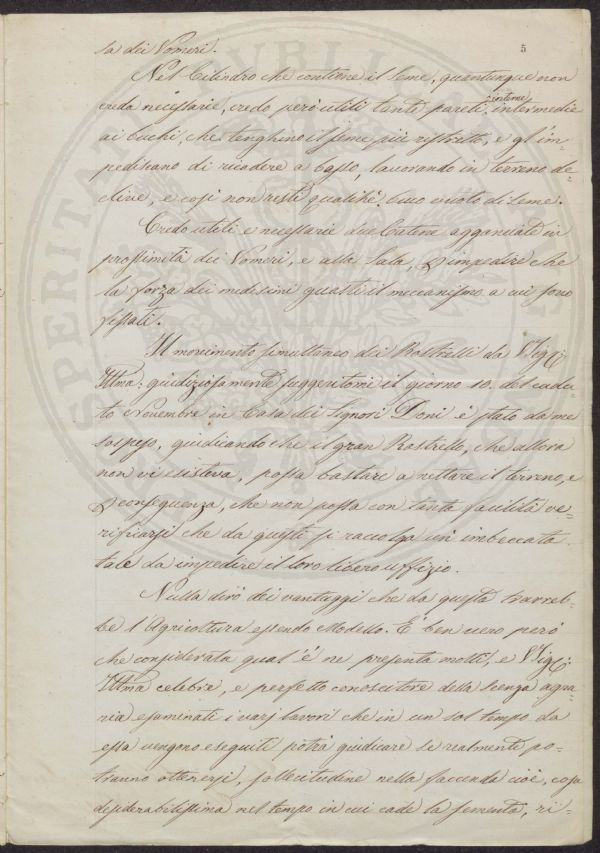 5
la dei Vomeri.
Nel Cilindro che contiene il seme, quantunque non
creda necessarie, credo però utili tante pareti interne intermedie
ai buchi, che tenghino il seme più ristretto, e gl'im-
pediscano di ricadere a basso, lavorando in terreno de-
clive, e così non resti qualche buco vuoto di seme.
Credo utili e necessarie due Catene agganciate in
prossimità dei Vomeri, e alla Sala, p impedire che
la forza dei medesimi guasti il meccanismo a cui sono
fissati.
Il movimento simultaneo dei Rastrelli da V. Sig.
Illma: giudiziosamente suggeritomi il giorno 10. del cadu-
to Novembre in Casa dei Signori Doni è stato da me
sospeso, giudicando che il gran Rastrello, che allora
non vi esisteva, possa bastare a nettare il terreno, e
p conseguenza, che non possa con tanta facilità ve-
rificarsi che da questi si raccolga un' imbeccata
tale da impedire il loro libero uffizio.
Nulla dirò dei vantaggi che da questa trarreb-
be l'Agricoltura essendo Modello. È ben vero però
che considerata qual'è ne presenta molti, e V. Sig.
Illma celebre, e perfetto conoscitore della scienza agra-
ria esaminati i varj lavori che in un sol tempo da
essa vengono eseguiti potrà giudicare se realmente po-
tranno ottenersi, sollecitudine nella faccenda cioè, cosa
desiderabilissima nel tempo in cui cade la sementa, ri-
SPERITAS PUBLICA